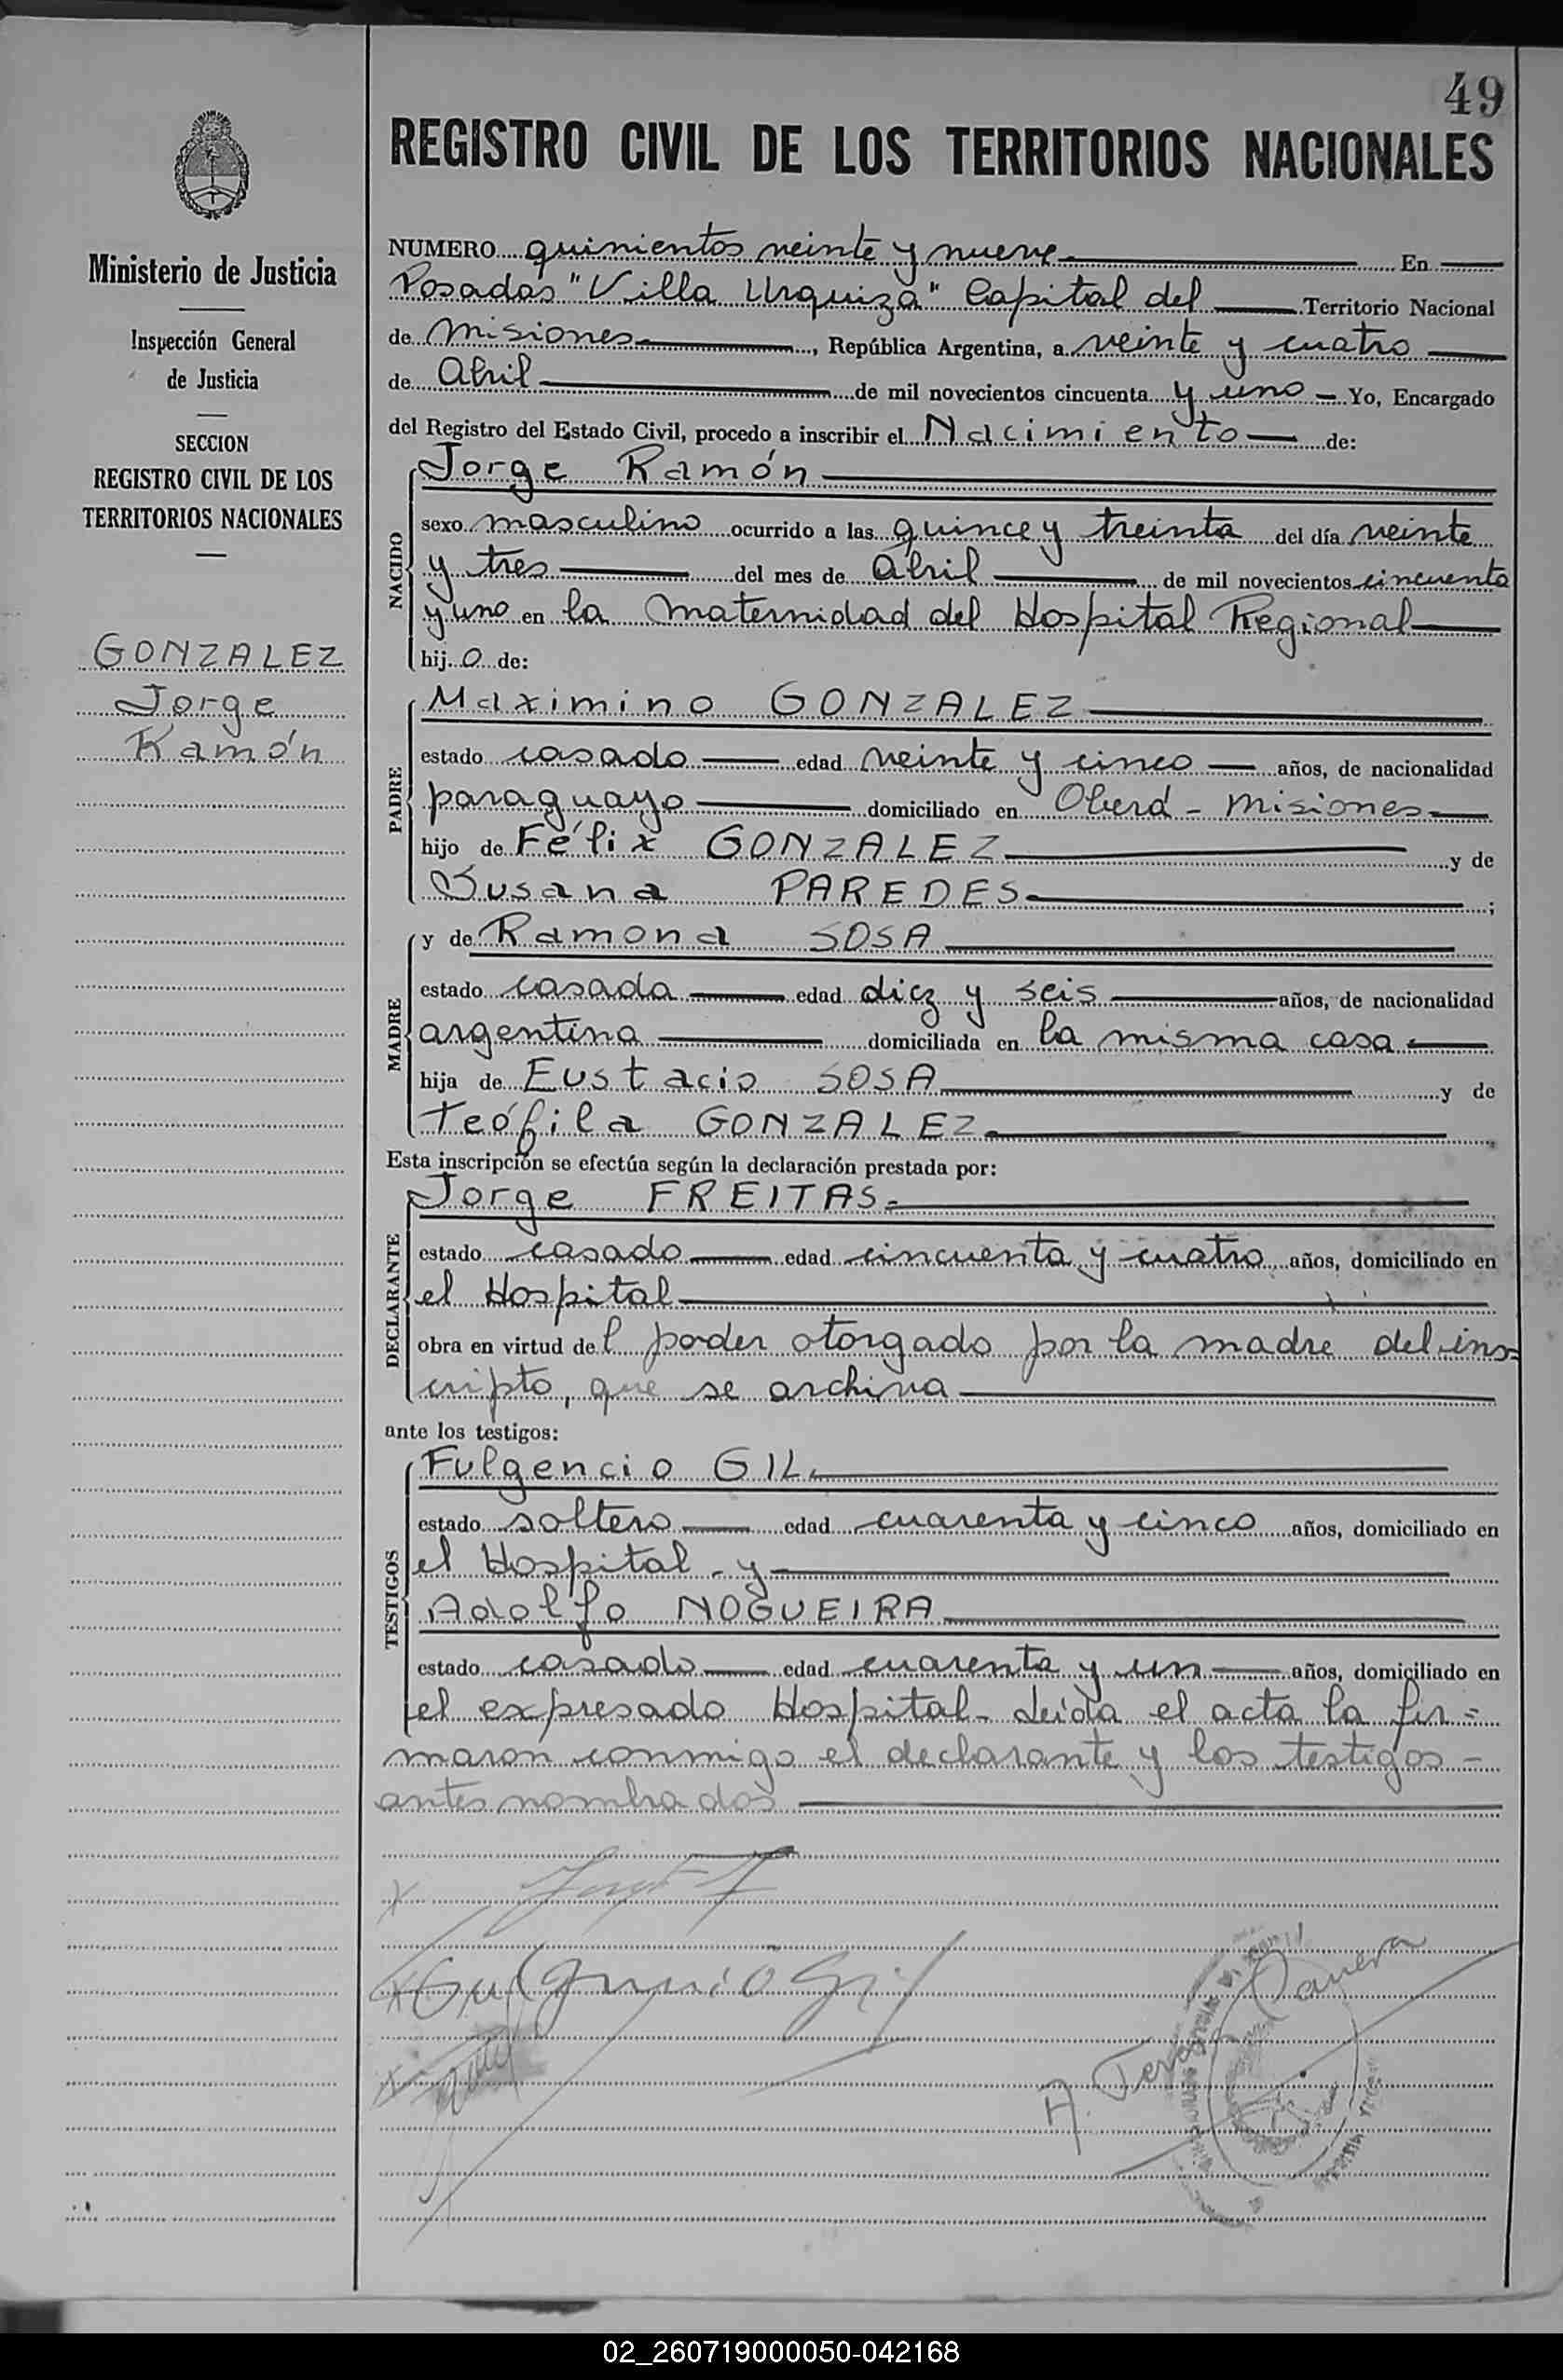 49
REGISTRO CIVIL DE LOS TERRITORIOS NACIONALES
Ministerio de Justicia
Inspección General
de Justicia
SECCION
REGISTRO CIVIL DE LOS
TERRITORIOS NACIONALES
GONZALEZ
Jorge
Ramón
NUMERO quinientos veinte y nueve En
Posadas "Villa Urquiza" Capital del Territorio Nacional
de Misiones, República Argentina, a veinte y cuatro
de Abril de mil novecientos cincuenta y uno Yo, Encargado
del Registro del Estado Civil, procedo a inscribir el Nacimiento de:
NACIDO
Jorge Ramón
sexo masculino ocurrido a las quince y treinta del día veinte
y tres del mes de Abril de mil novecientos cincuenta
y uno en la Maternidad del Hospital Regional
hij o de:
PADRE
Maximino GONZALEZ
estado casado edad veinte y cinco años, de nacionalidad
paraguayo domiciliado en Oberá - Misiones
hijo de Félix GONZALEZ y de
Susana PAREDES ;
MADRE
y de Ramona SOSA
estado casada edad diez y seis años, de nacionalidad
argentina domiciliada en la misma casa
hija de Eustacio SOSA y de
Teófila GONZALEZ.
Esta inscripción se efectúa según la declaración prestada por:
DECLARANTE
Jorge FREITAS
estado casado edad cincuenta y cuatro años, domiciliado en
el Hospital
obra en virtud del poder otorgado por la madre del ins=
cripto, que se archiva
ante los testigos:
TESTIGOS
Fulgencio GIL
estado soltero edad cuarenta y cinco años, domiciliado en
el Hospital - y
Adolfo NOGUEIRA
estado casado edad cuarenta y un años, domiciliado en
el expresado Hospital - Leída el acta la fir=
maron conmigo el declarante y los testigos -
antes nombrados
02_260719000050-042168